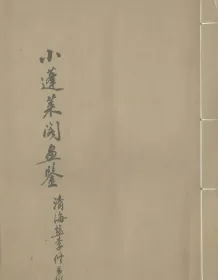 小蓬莱阁画鉴
清海阳李修易